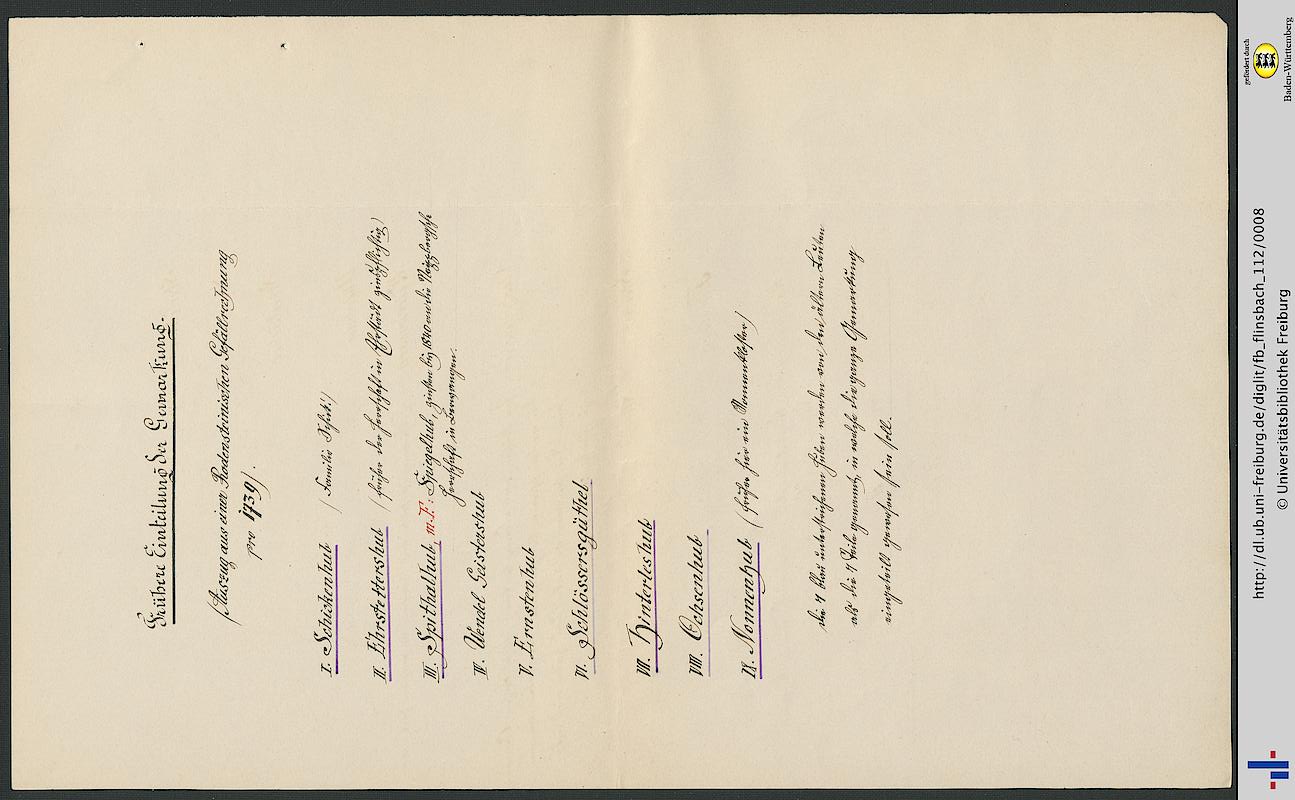 Frühere Einteilung der Gemarkung.
(Auszug aus einer Rodensteinischen Gefällrechnung
pro 1739).
I. Schickenhub (Familie Schick!)
II. Ehrstettershub (früher der Herrschaft in Ehrstädt zinspflichtig)
III. Spithalhub, m. F.: Spiegelhub, zinsten bis 1840 an die
herrschaft in Bargen
IV. Wendel Geistershub
V. Ernstenhub
VI. Schlössersgüthel
VII. Hinterleshub
VIII. Ochsenhub
IX. Nonnenhub (früher hier ein Nonnenkloster)
Die 7 blau unterstrichenen Huben werden von den ältern Leuten
als die 7 Teile genannt, in welche die ganze Gemarkung
eingeteilt gewesen sein soll.
gefördert durch
Baden-Württemberg
http://dl.ub.uni-freiburg.de/diglit/fb_flinsbach_112/0008
© Universitätsbibliothek Freiburg